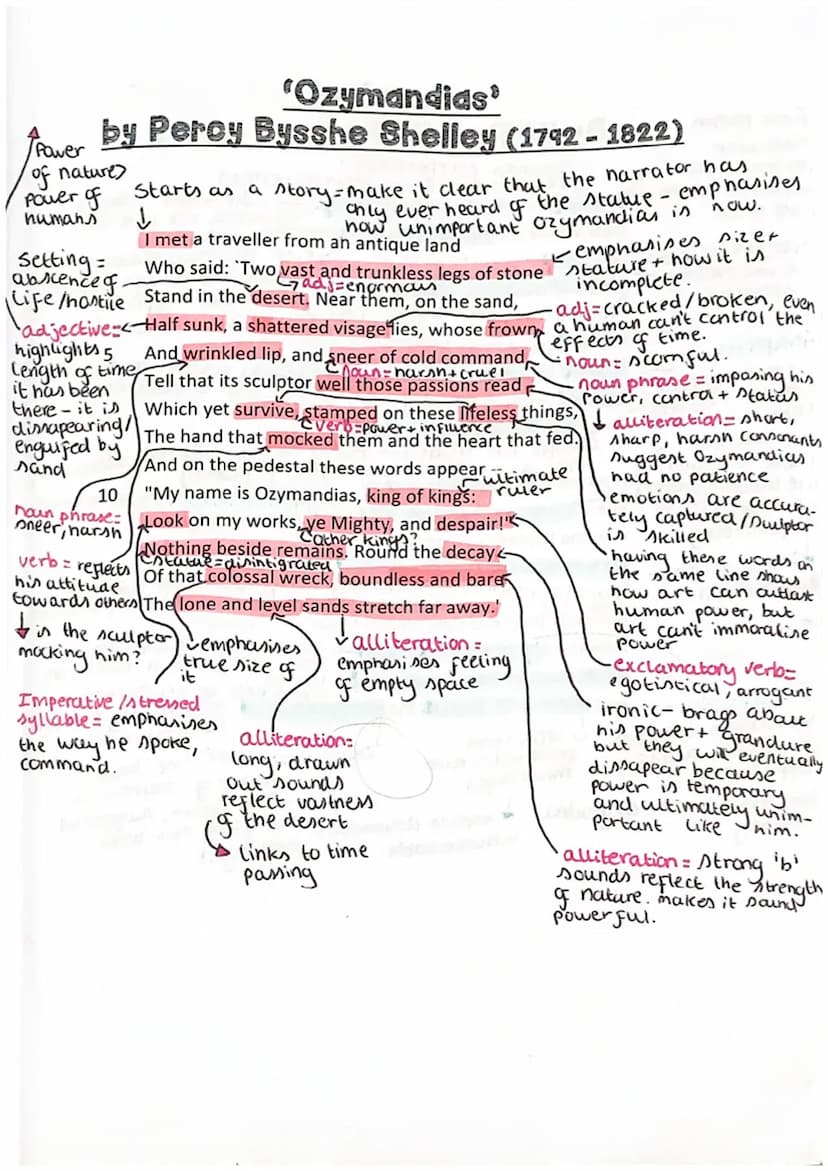 'Ozymandias'
by Percy Bysshe Shelley (1792 – 1822)
Power
of nature>
power of
humans
Starts as a story = make it clear that the narrator has
only ever heard of the statue - emphasises
how unimportant ozymandias is now.
I met a traveller from an antique land
Who said: 'Two vast and trunkless legs of stone
adj=enormous
Stand in the desert. Near them, on the sand,
Half sunk, a shattered visage lies, whose frown,
And wrinkled lip, and sneer of cold command,
noun=harsh+cruel
Tell that its sculptor well those passions read
Which yet survive, stamped on these lifeless things,
verb=power+influence
The hand that mocked them and the heart that fed.
And on the pedestal these words appear
ultimate
ruler
10
"My name is Ozymandias, king of kings:
Look on my works, ye Mighty, and despair!"
other kings?
Nothing beside remains. Round the decay
statue=disintigrated
Of that colossal wreck, boundless and bare
The lone and level sands stretch far away.'
Setting =
abscence of
life/hostile
adjective=
highlights
5
length of time
it has been
there - it is
dissapearing/
engulfed by
sand
noun phrase=
sneer, harsh
verb = reflects
his attitude
towards others
is the sculptor
mocking him?
Imperative/stressed
syllable = emphasises
the way he spoke,
command.
emphasises
true size of
it
alliteration=
long, drawn
out sounds
reflect vastness
of the desert
links to time
passing
alliteration =
emphasises feeling
of empty space
emphasises size+
stature + how it is
incomplete.
adj=cracked/broken, even
a human can't control the
effects of time.
noun= scornful.
noun phrase = imposing his
power, control + status
alliteration= short,
sharp, harsh consonants
suggest Ozymandias
had no patience
emotions are accura-
tely captured/sculptor
is skilled
having these words on
the same line shows
how art can outlast
human power, but
art can't immoralise
power
exclamatory verb=
egotistical, arrogant
ironic- brags about
his power+ grandure
but they will eventually
dissapear because
power is temporary
and ultimately unim-
portant like him.
alliteration = strong 'b'
sounds reflect the strength
of nature. makes it sound
powerful.